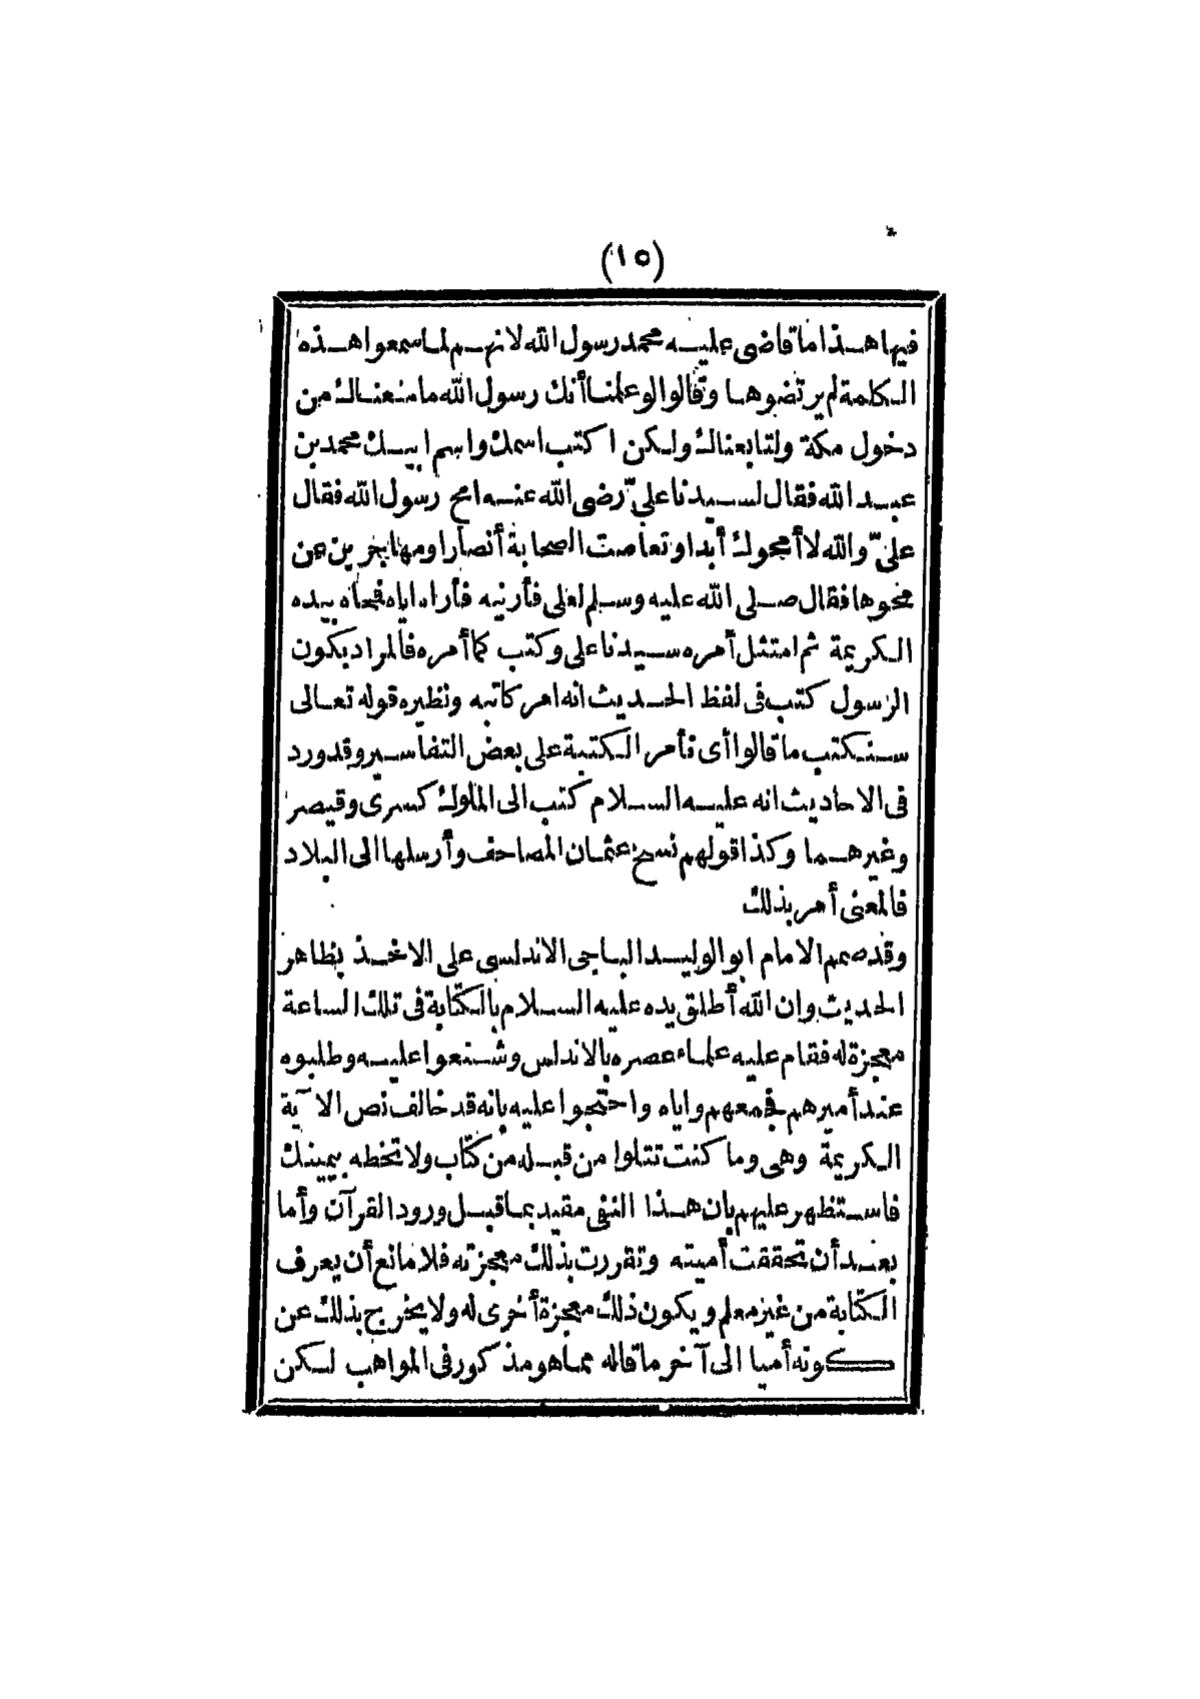 (١٥)
فيها هذا ما قاضى عليه محمد رسول الله لانهم لما سمعوا هذه
الكلمة لم يرتضوها وقالوا لو علمنا أنك رسول الله ما منعناك من
دخول مكة ولتابعناك ولكن اكتب اسمك واسم ابيك محمد بن
عبد الله فقال لسيدنا علىّ رضى الله عنه امح رسول الله فقال
علىّ والله لا أمحوك أبدا وتعاصت الصحابة أنصارا ومهاجرين عن
محوها فقال صلى الله عليه وسلم لعلى فأرنيه فأراه اياه فمحاه بيده
الكريمة ثم امتثل أمره سيدنا على وكتب كما أمره فالمراد بكون
الرسول كتب فى لفظ الحديث انه امر كاتبه ونظيره قوله تعالى
سنكتب ما قالوا أى نأمر الكتبة على بعض التفاسير وقد ورد
فى الاحاديث انه عليه السلام كتب الى الملوك كسرى وقيصر
وغيرهما وكذا قولهم نسخ عثمان المصاحف وأرسلها الى البلاد
فالمعنى أمر بذلك
وقد صمم الامام ابو الوليد الباجى الاندلسى على الاخذ بظاهر
الحديث وان الله أطلق يده عليه السلام بالكتابة فى تلك الساعة
معجزة له فقام عليه علماء عصره بالاندلس وشنعوا عليه وطلبوه
عند أميرهم فجمعهم واياه واحتجوا عليه بانه قد خالف نص الآية
الكريمة وهى وما كنت تتلوا من قبله من كتاب ولا تخطه بيمينك
فاستظهر عليهم بان هذا النفى مقيد بما قبل ورود القرآن وأما
بعد أن تحققت أميته وتقررت بذلك معجزته فلا مانع أن يعرف
الكتابة من غير معلم ويكون ذلك معجزة أخرى له ولا يخرج بذلك عن
كونه أميا الى آخر ما قاله مما هو مذكور فى المواهب لكن